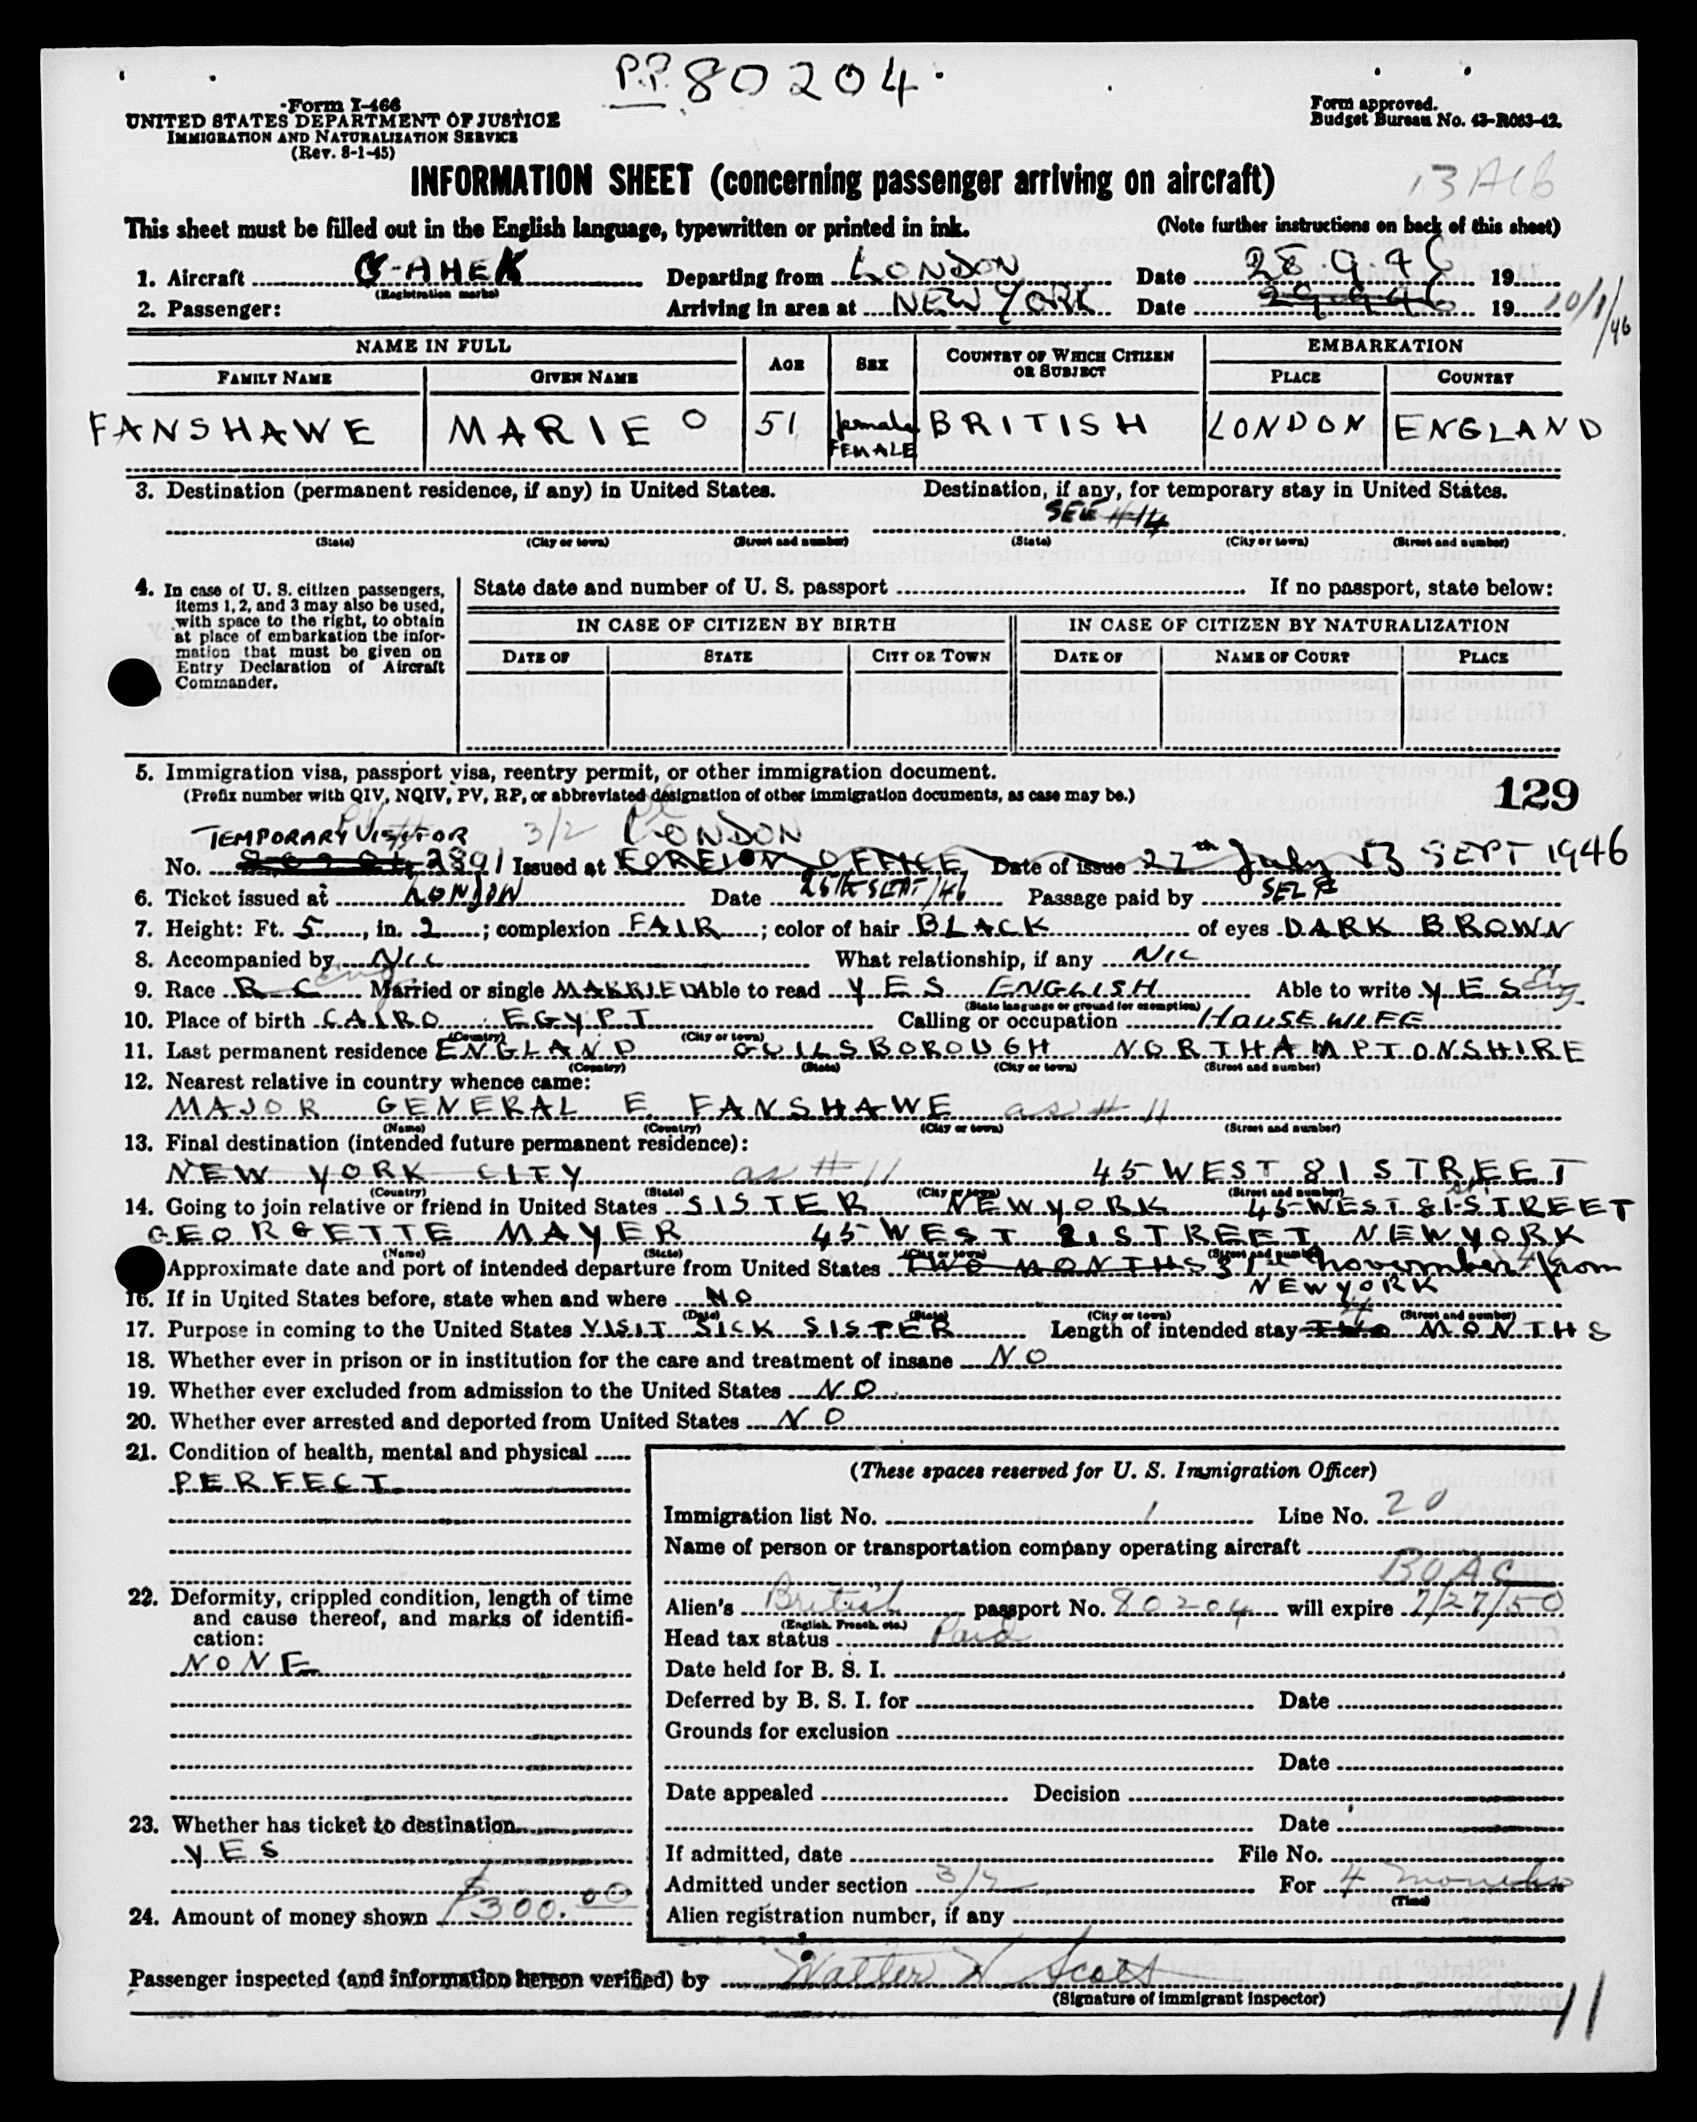 P.P. 80204.
Form I-466
UNITED STATES DEPARTMENT OF JUSTICE
IMMIGRATION AND NATURALIZATION SERVICE
(Rev. 8-1-45)
Form approved.
Budget Bureau No. 43-R063-42.
INFORMATION SHEET (concerning passenger arriving on aircraft)
This sheet must be filled out in the English language, typewritten or printed in ink. (Note further instructions on back of this sheet)
1. Aircraft G-AHEK Departing from LONDON Date 28.9.46 19
(Registration marks)
2. Passenger: Arriving in area at NEW YORK Date 29.9.46 19 10/1/46
NAME IN FULL AGE SEX COUNTRY OF WHICH CITIZEN OR SUBJECT EMBARKATION
FAMILY NAME GIVEN NAME PLACE COUNTRY
FANSHAWE MARIE O 51 female BRITISH LONDON ENGLAND
FEMALE
3. Destination (permanent residence, if any) in United States. Destination, if any, for temporary stay in United States.
SEE #14
(State) (City or town) (Street and number) (State) (City or town) (Street and number)
4. In case of U. S. citizen passengers, items 1, 2, and 3 may also be used, with space to the right, to obtain at place of embarkation the information that must be given on Entry Declaration of Aircraft Commander.
State date and number of U. S. passport If no passport, state below:
IN CASE OF CITIZEN BY BIRTH IN CASE OF CITIZEN BY NATURALIZATION
DATE OF STATE CITY OR TOWN DATE OF NAME OF COURT PLACE
5. Immigration visa, passport visa, reentry permit, or other immigration document.
(Prefix number with QIV, NQIV, PV, RP, or abbreviated designation of other immigration documents, as case may be.)
129
TEMPORARY VISITOR 3/2 LONDON
No. 2891 Issued at FOREIGN OFFICE Date of issue 27th July 13 SEPT 1946
6. Ticket issued at LONDON Date 25TH SEPT/46 Passage paid by SELF
7. Height: Ft. 5, in. 2; complexion FAIR; color of hair BLACK of eyes DARK BROWN
8. Accompanied by NIL What relationship, if any NIL
9. Race R C Eng Married or single MARRIED Able to read YES ENGLISH Able to write YES Eng
(State language or ground for exemption)
10. Place of birth CAIRO EGYPT Calling or occupation HOUSEWIFE
(Country) (City or town)
11. Last permanent residence ENGLAND GUILSBOROUGH NORTHAMPTONSHIRE
(Country) (State) (City or town) (Street and number)
12. Nearest relative in country whence came:
MAJOR GENERAL E FANSHAWE as # 11
(Name) (Country) (City or town) (Street and number)
13. Final destination (intended future permanent residence):
NEW YORK CITY as # 11 45 WEST 81 STREET
(Country) (State) (City or town) (Street and number)
14. Going to join relative or friend in United States SISTER NEW YORK 45 WEST 81 STREET
GEORGETTE MAYER 45 WEST 81 STREET NEW YORK
(Name) (State) (City or town) (Street and number)
Approximate date and port of intended departure from United States TWO MONTHS 31st November 46 from
NEW YORK
16. If in United States before, state when and where NO
(Date) (State) (City or town) (Street and number)
17. Purpose in coming to the United States VISIT SICK SISTER Length of intended stay TWO 4 MONTHS
18. Whether ever in prison or in institution for the care and treatment of insane NO
19. Whether ever excluded from admission to the United States NO
20. Whether ever arrested and deported from United States NO
21. Condition of health, mental and physical
PERFECT
22. Deformity, crippled condition, length of time and cause thereof, and marks of identification:
NONE
23. Whether has ticket to destination
YES
24. Amount of money shown $300.00
(These spaces reserved for U. S. Immigration Officer)
Immigration list No. 1 Line No. 20
Name of person or transportation company operating aircraft
BOAC
Alien's British passport No. 80204 will expire 7/27/50
(English, French, etc.)
Head tax status Paid
Date held for B. S. I.
Deferred by B. S. I. for Date
Grounds for exclusion
Date
Date appealed Decision
Date
If admitted, date File No.
Admitted under section 3/2 For 4 months
(Time)
Alien registration number, if any
Passenger inspected (and information hereon verified) by Walter H Scott
(Signature of immigrant inspector)
11